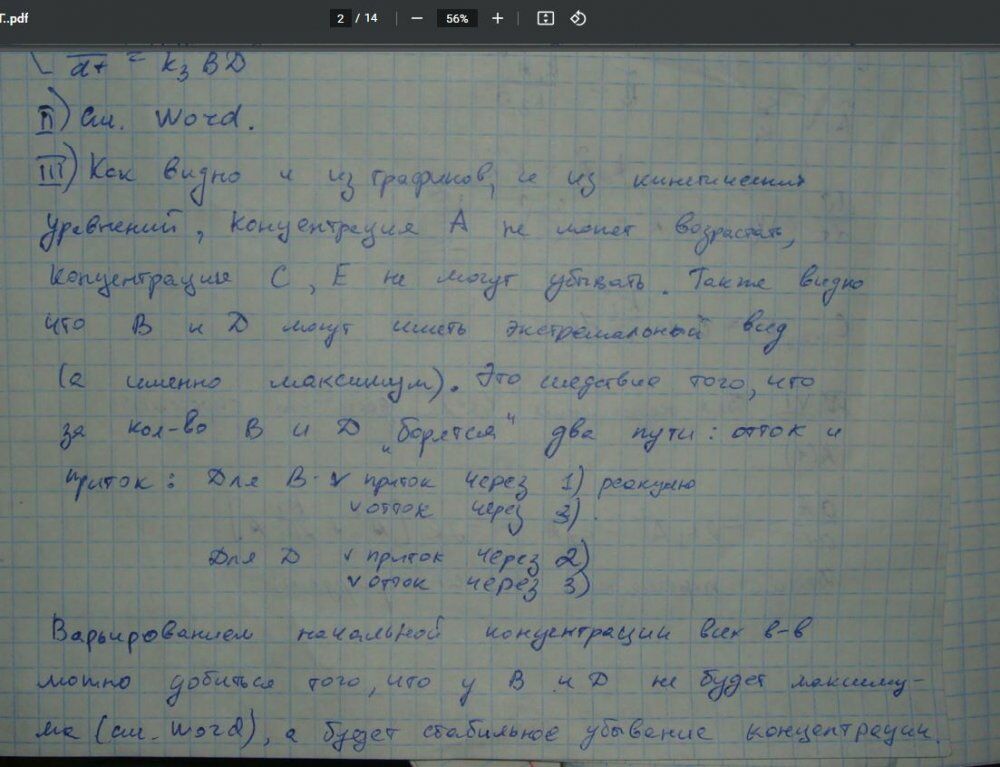 Г..pdf
2 / 14
56%
dt = k3 B D
II) См. Word.
III) Как видно и из графиков, и из кинетических
уравнений, концентрация А не может возрастать,
концентрации С, Е не могут убывать. Также видно
что В и D могут иметь экстремальный вид
(а именно максимум). Это следствие того, что
за кол-во В и D „борятся“ два пути: отток и
приток: Для В ∨ приток через 1) реакцию
∨ отток через 3)
Для D ∨ приток через 2)
∨ отток через 3)
Варьированием начальной концентрации всех в-в
можно добиться того, что у В и D не будет максиму-
ма (см. Word), а будет стабильное убывание концентрации.